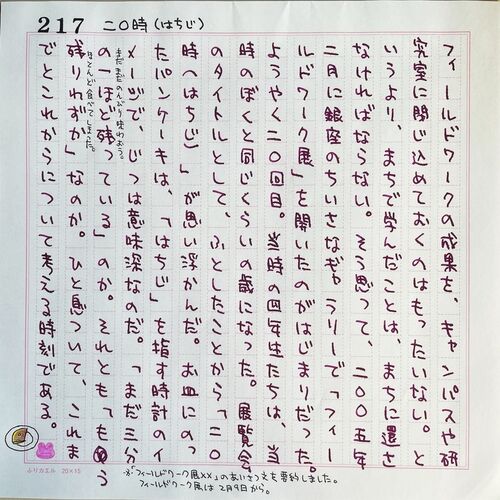 217 二〇時(はちじ)
フィールドワークの成果を、キャンパスや研
究室に閉じ込めておくのはもったいない。と
いうより、まちで学んだことは、まちに還さ
なければならない。そう思って、二〇〇五年
二月に銀座のちいさなギャラリーで「フィー
ルドワーク展」を開いたのがはじまりだった。
ようやく二〇回目。当時の四年生たちは、当
時のぼくと同じくらいの歳になった。展覧会
のタイトルとして、ふとしたことから「二〇
時(はちじ)」が思い浮かんだ。お皿にのっ
たパンケーキは、「はちじ」を指す時計のイ
メージで、じつは意味深なのだ。「まだ三分
まだまだのんびり味わおう。
の一ほど残っている」のか。それとも「もう
残りわずか」なのか。ひと息ついて、これま
ほとんど食べてしまった。
でとこれからについて考える時刻である。
ふりカエル 20×15
※「フィールドワーク展XX」のあいさつ文を要約しました。
フィールドワーク展は2月9日から。